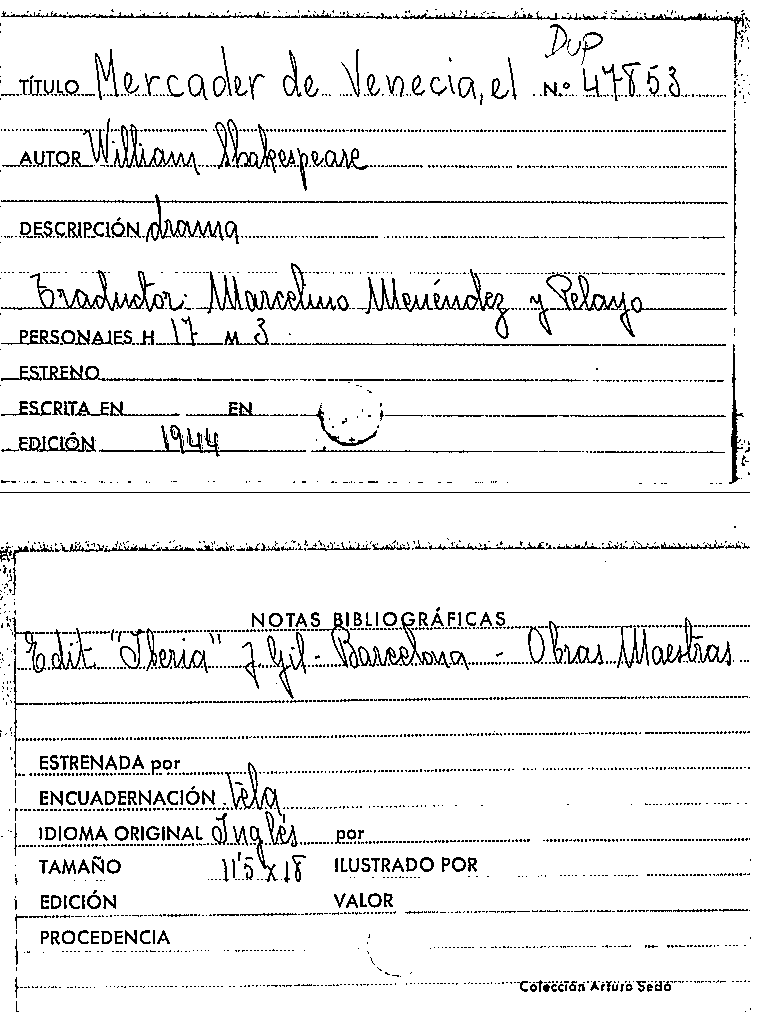 Dup
TÍTULO Mercader de Venecia, el N.º 47853
AUTOR William Shakespeare
DESCRIPCIÓN drama
Traductor: Marcelino Menéndez y Pelayo
PERSONAJES H 17 M 3
ESTRENO
ESCRITA EN EN
EDICIÓN 1944
NOTAS BIBLIOGRÁFICAS
Edit. "Iberia" J. Gil - Barcelona - Obras Maestras
ESTRENADA por
ENCUADERNACIÓN tela
IDIOMA ORIGINAL Inglés por
TAMAÑO 11'5 x 18 ILUSTRADO POR
EDICIÓN VALOR
PROCEDENCIA
Colección Arturo Sedó